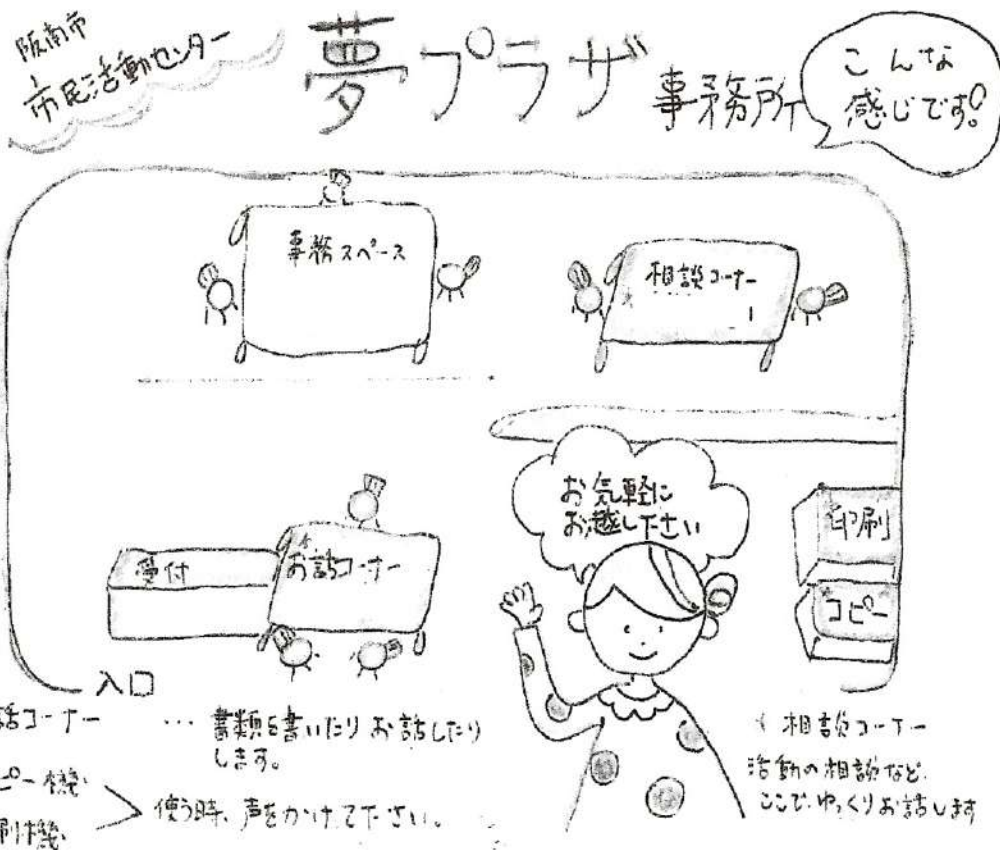 阪南市
市民活動センター
夢プラザ 事務所
こんな
感じです!
事務スペース
相談コーナー
お気軽に
お越し下さい
印刷
コピー
受付
お話コーナー
入口
話コーナー … 書類を書いたりお話したり
します。
ピー機
刷機
使う時、声をかけて下さい。
相談コーナー
活動の相談など、
ここで、ゆっくりお話します